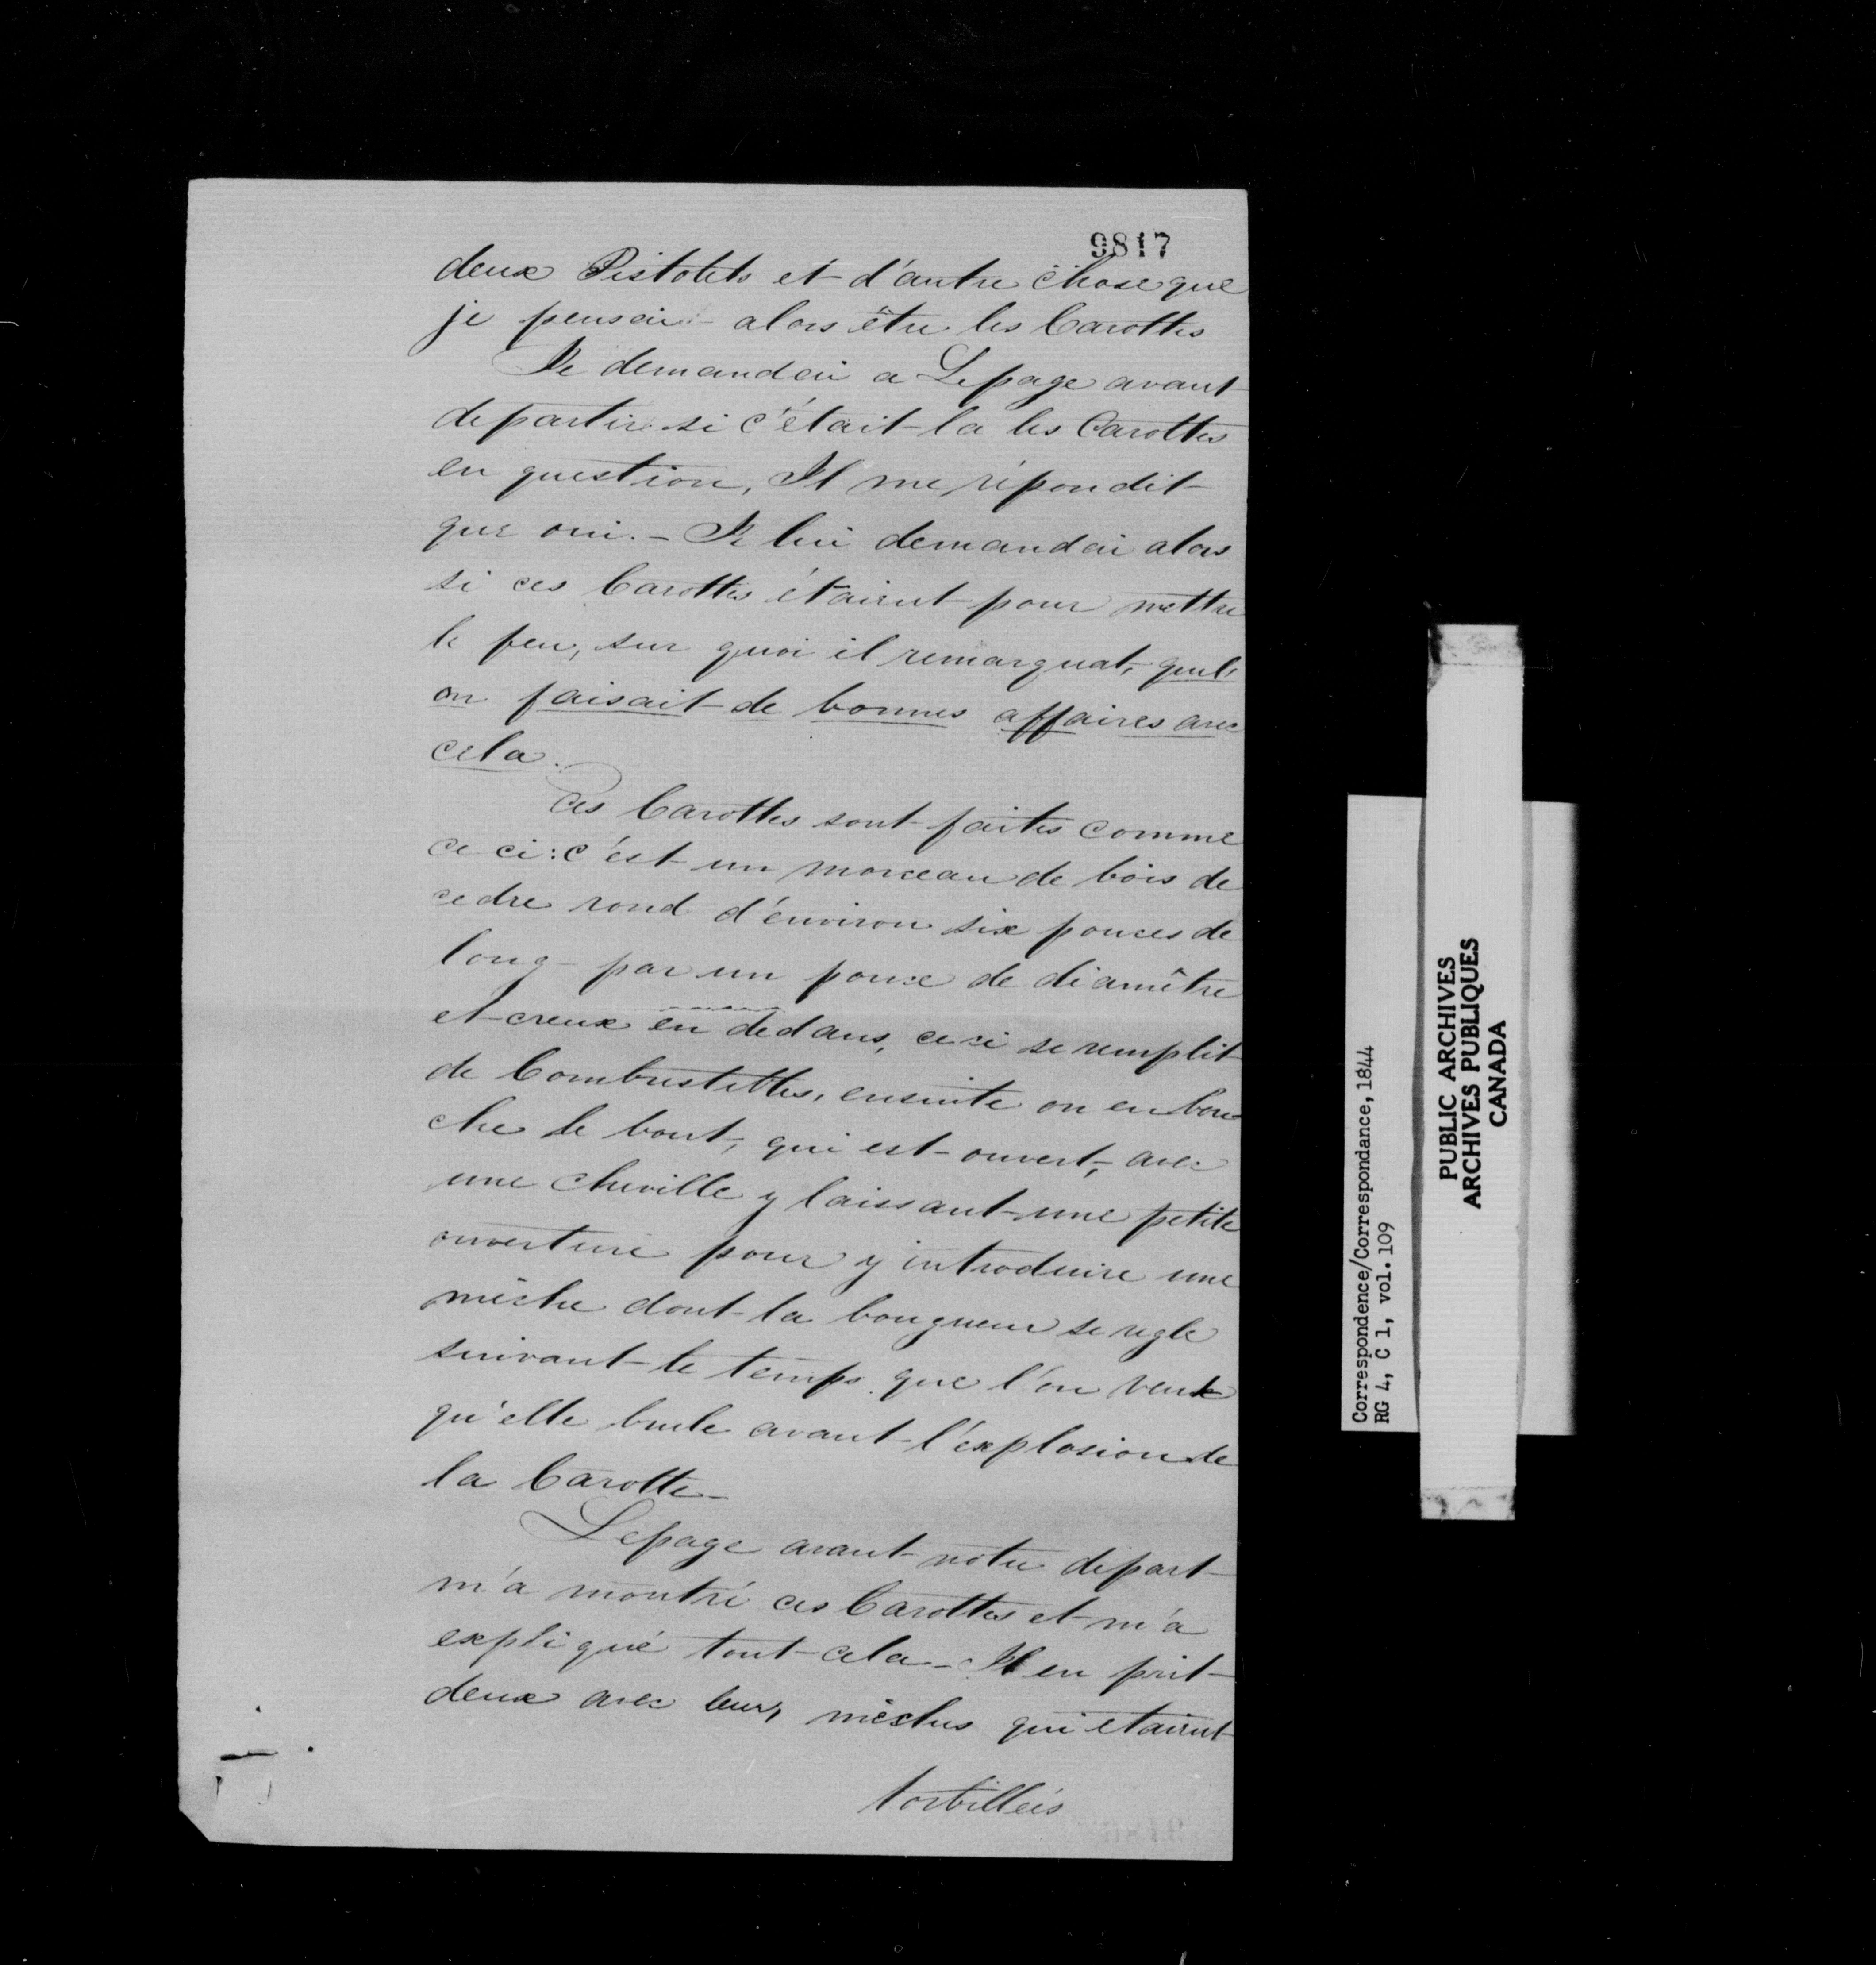 9817
deux Pistolets et d'autre chose que
je pensai alors être les Carottes
Je demandai a Lepage avant
de partir si c'était la les Carottes
en question, Il me répondit
que oui. - Je lui demandai alors
si ces Carottes étaient pour mettre
le feu, sur quoi il remarquat, quel
on faisait de bonnes affaires avec
cela.
Ces Carottes sont faites comme
ce ci: c'est un morceau de bois de
cedre rond d'environ six pouces de
long par un pouce de diamêtre
et creux en dedans, ceci se remplit
de Combustibles, ensuite on en bou
che le bout, qui est ouvert, avec
une cheville y laissant une petite
ouverture pour y introduire une
mèche dont la longueur se regle
suivant le temps que l'on veut
qu'elle brule avant l'explosion de
la Carotte -
Lepage avant notre départ
m'a montré ces Carottes et m'a
expliqué tout cela - Il en prit
deux avec leurs mèches qui etaient
tortillées
Correspondence/Correspondance, 1844
RG 4, C 1, vol. 109
PUBLIC ARCHIVES
ARCHIVES PUBLIQUES
CANADA